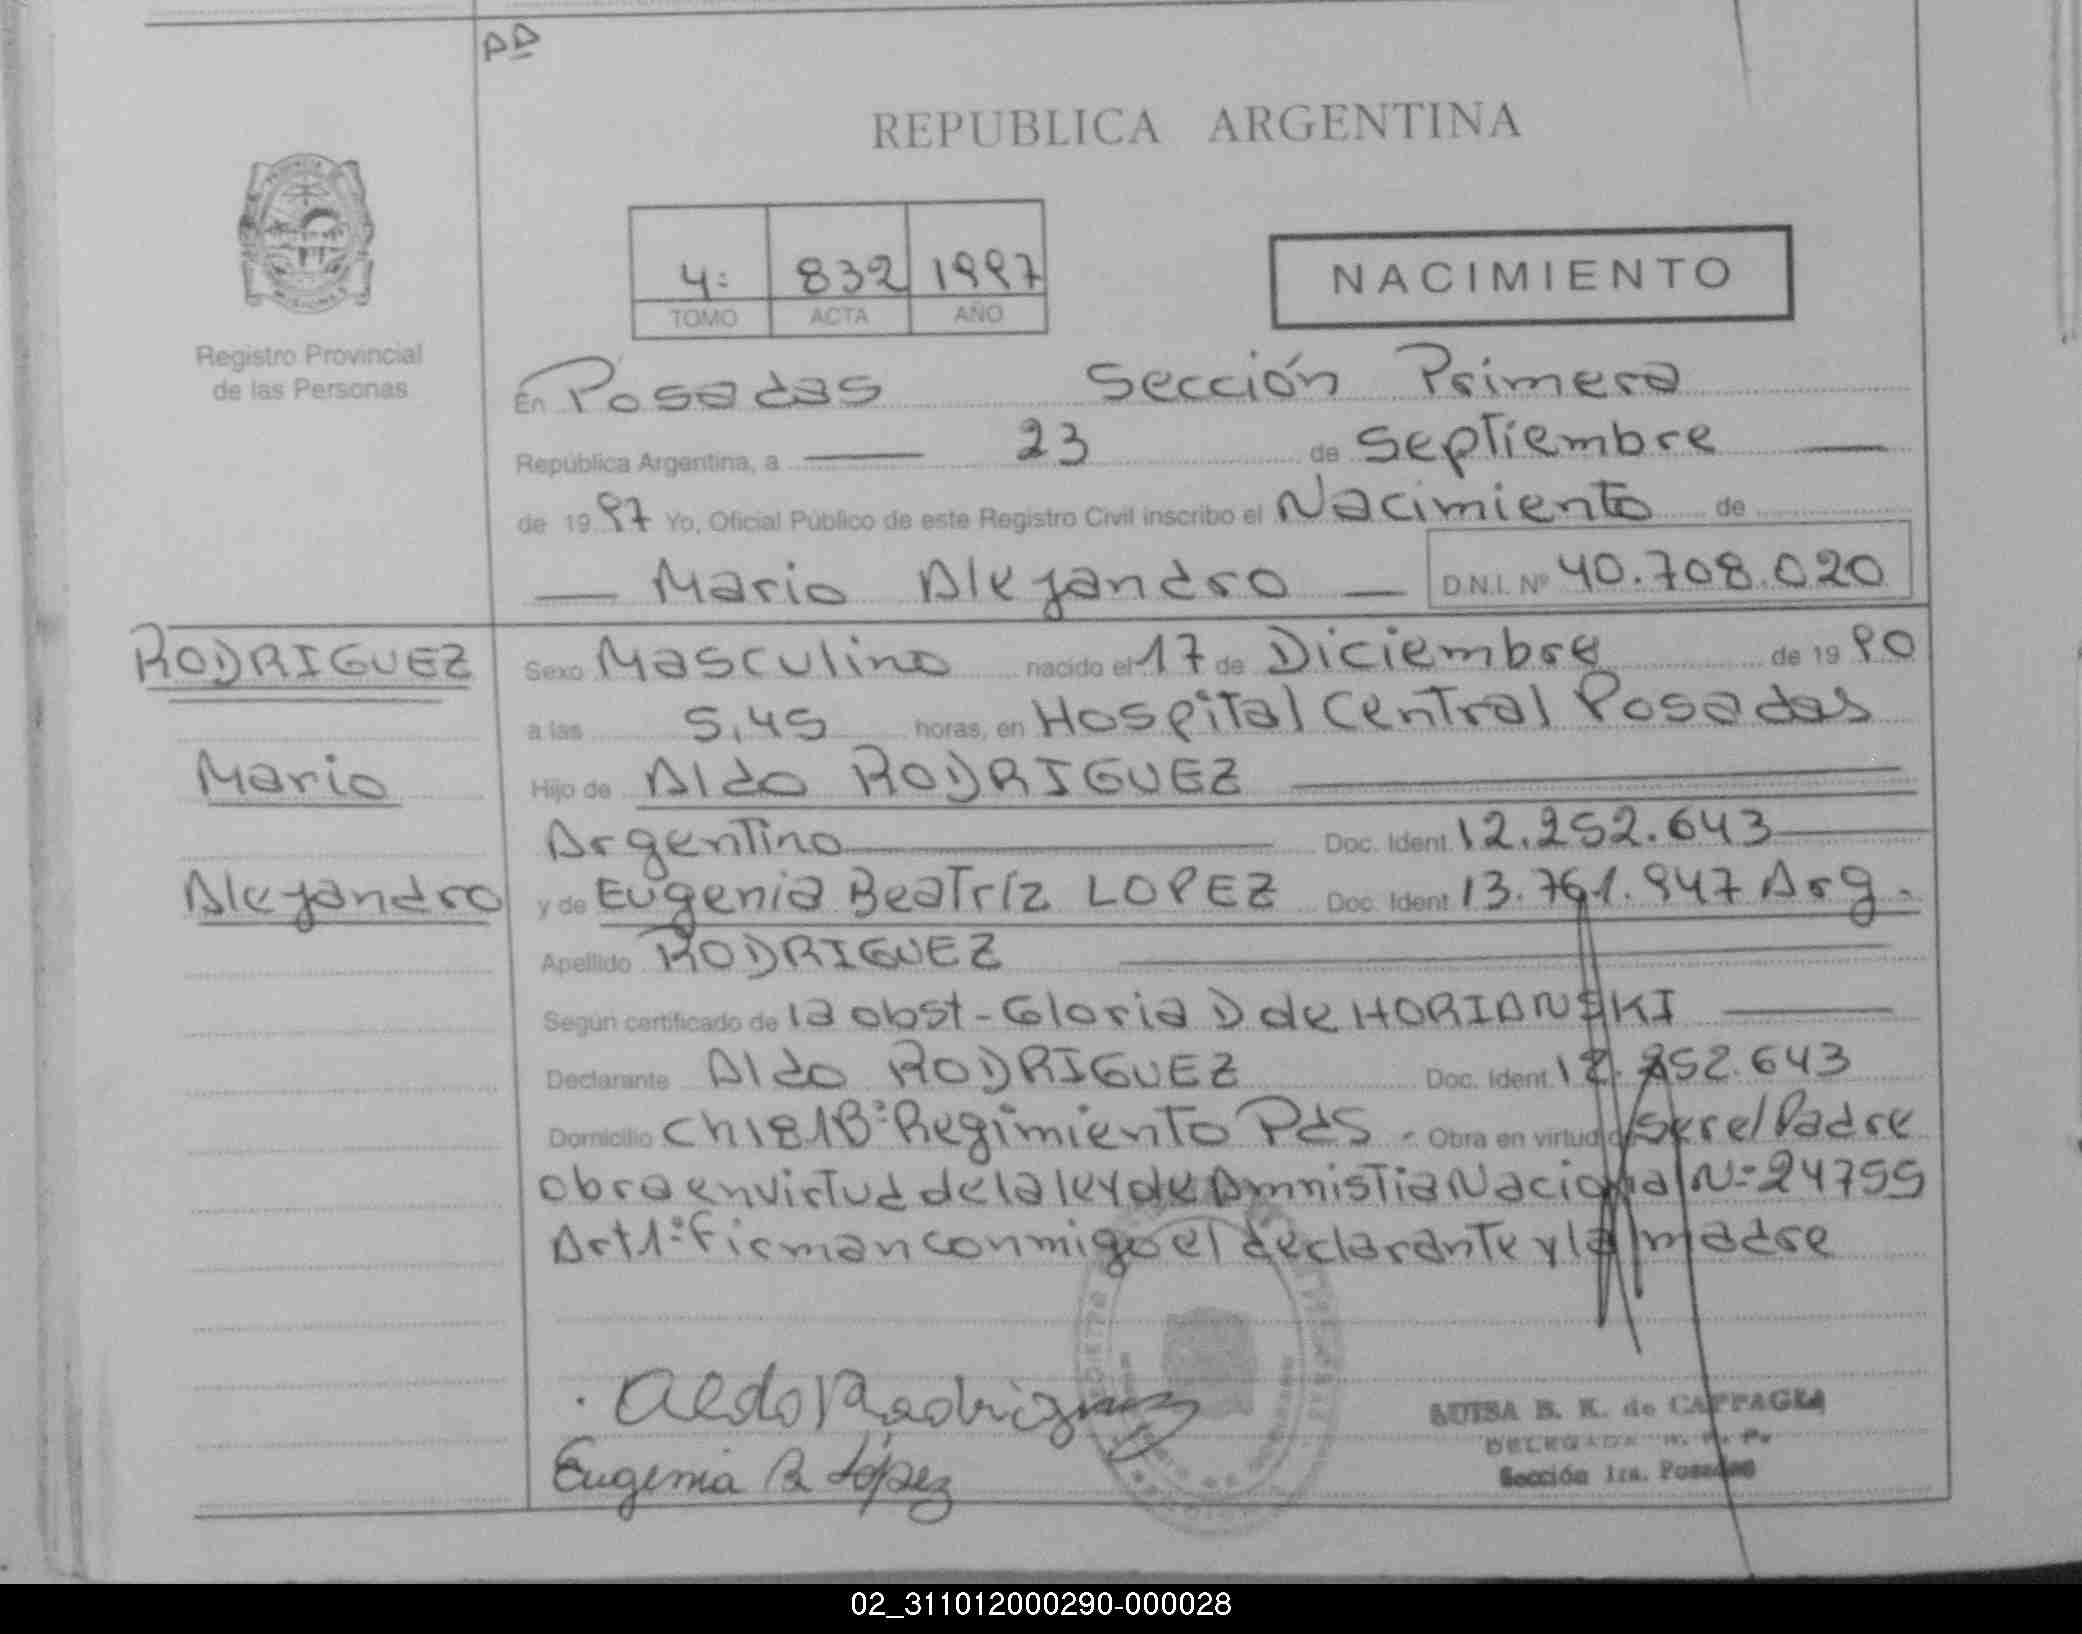 DD
REPUBLICA ARGENTINA
4: 832 1997
TOMO ACTA AÑO
NACIMIENTO
Registro Provincial
de las Personas
En Posadas Sección Primera
República Argentina, a 23 de Septiembre
de 1997 Yo, Oficial Público de este Registro Civil inscribo el Nacimiento de
Mario Alejandro D.N.I. Nº 40.708.020
RODRIGUEZ
Mario
Alejandro
Sexo Masculino nacido el 17 de Diciembre de 1990
a las 5,45 horas, en Hospital Central Posadas
Hijo de Aldo RODRIGUEZ
Argentino Doc. Ident. 12.252.643
y de Eugenia Beatríz LOPEZ Doc. Ident 13.761.947 Arg.
Apellido RODRIGUEZ
Según certificado de la obst - Gloria D de HORIANSKI
Declarante Aldo RODRIGUEZ Doc. Ident. 12.252.643
Domicilio Ch181Bº Regimiento Pdas - Obra en virtud de ser el Padre
obra en virtud de la ley de Amnistia Nacional N=24755
Art1º Firman conmigo el declarante y la madre
Aldo Rodriguez
Eugenia B López
LUISA B. K. de CAPPAGLI
DELEGADA R. P. P.
Sección 1ra. Posadas
02_311012000290-000028